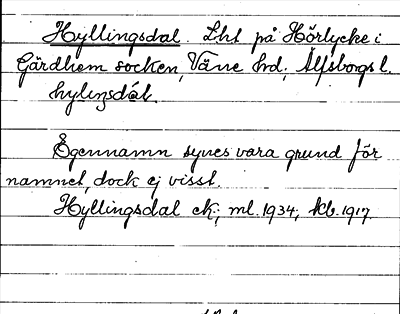 Hyllingsdal. Lht på Hörlycke i
Gärdhem socken, Väne hd, Älfsborgs l.
hyliŋsdál.
Egennamn synes vara grund för
namnet, dock ej visst.
Hyllingsdal ek; ml. 1934, kb. 1917